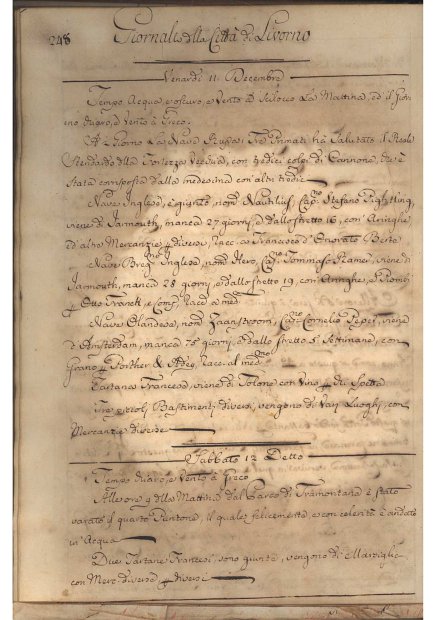 248
Giornale della Città di Livorno
Venardi 11 Decembre
Tempo Acqua, e oscuro, e Vento à Scilocco La Mattina, ed il Gior
no chiaro, e Vento à Greco.
A Giorno La Nave Russa Tre Primati hà Salutato il Reale
Stendardo della Fortezza Vecchia, con tredici colpi di Cannone, che è
Stata corrisposta dalla medesima con altri tredici
Nave Inglese, è giunto, nom.
Nautilius Cap.no Stefano
viene di Jarmouth, manca 27 giorni, e dallo stretto 16, con Aringhe
ed altre Mercanzie diverse, racc. a Francesco d'Onorato Berte
Nave Brig.no Inglese, nom. Hero Cap.no Tommaso viene di
Jarmouth, manca 28 giorni, e dallo stretto 19, con Aringhe, e Piombi
Otto Franck, e Comp. racc. a med.
Nave Olandese, nom. Zaanstroom, Cap.no Cornelio Peper, viene
d'Amsterdam, manca 75 giorni, e dallo stretto Settimane, con
Grano Porther & racc. al med.mo
Tartana Francese, viene di Tolone con Vino
Tre piccoli Bastimenti diversi, vengono di Varj Luoghi, con
Mercanzie diverse
Sabbato 12 Detto
Tempo chiaro, e Vento à Greco
Alle ore 9 della Mattina dal Parco di Tramontana è stato
varato il quarto Puntone, il quale felicemente, e con celerità è andato
in Acqua
Due Tartane Francesi, sono giunte, vengono di Marsiglia
con Merc. diverse diversi